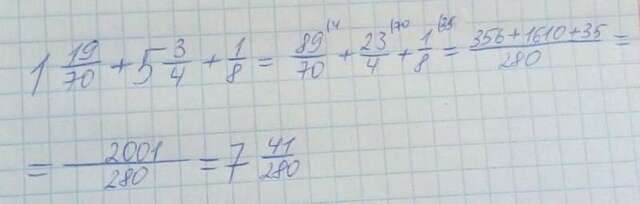 1 19/70 + 5 3/4 + 1/8 = 89/70 (4 + 23/4 (70 + 1/8 (35 = 356+1610+35/280 =
= 2001/280 = 7 41/280